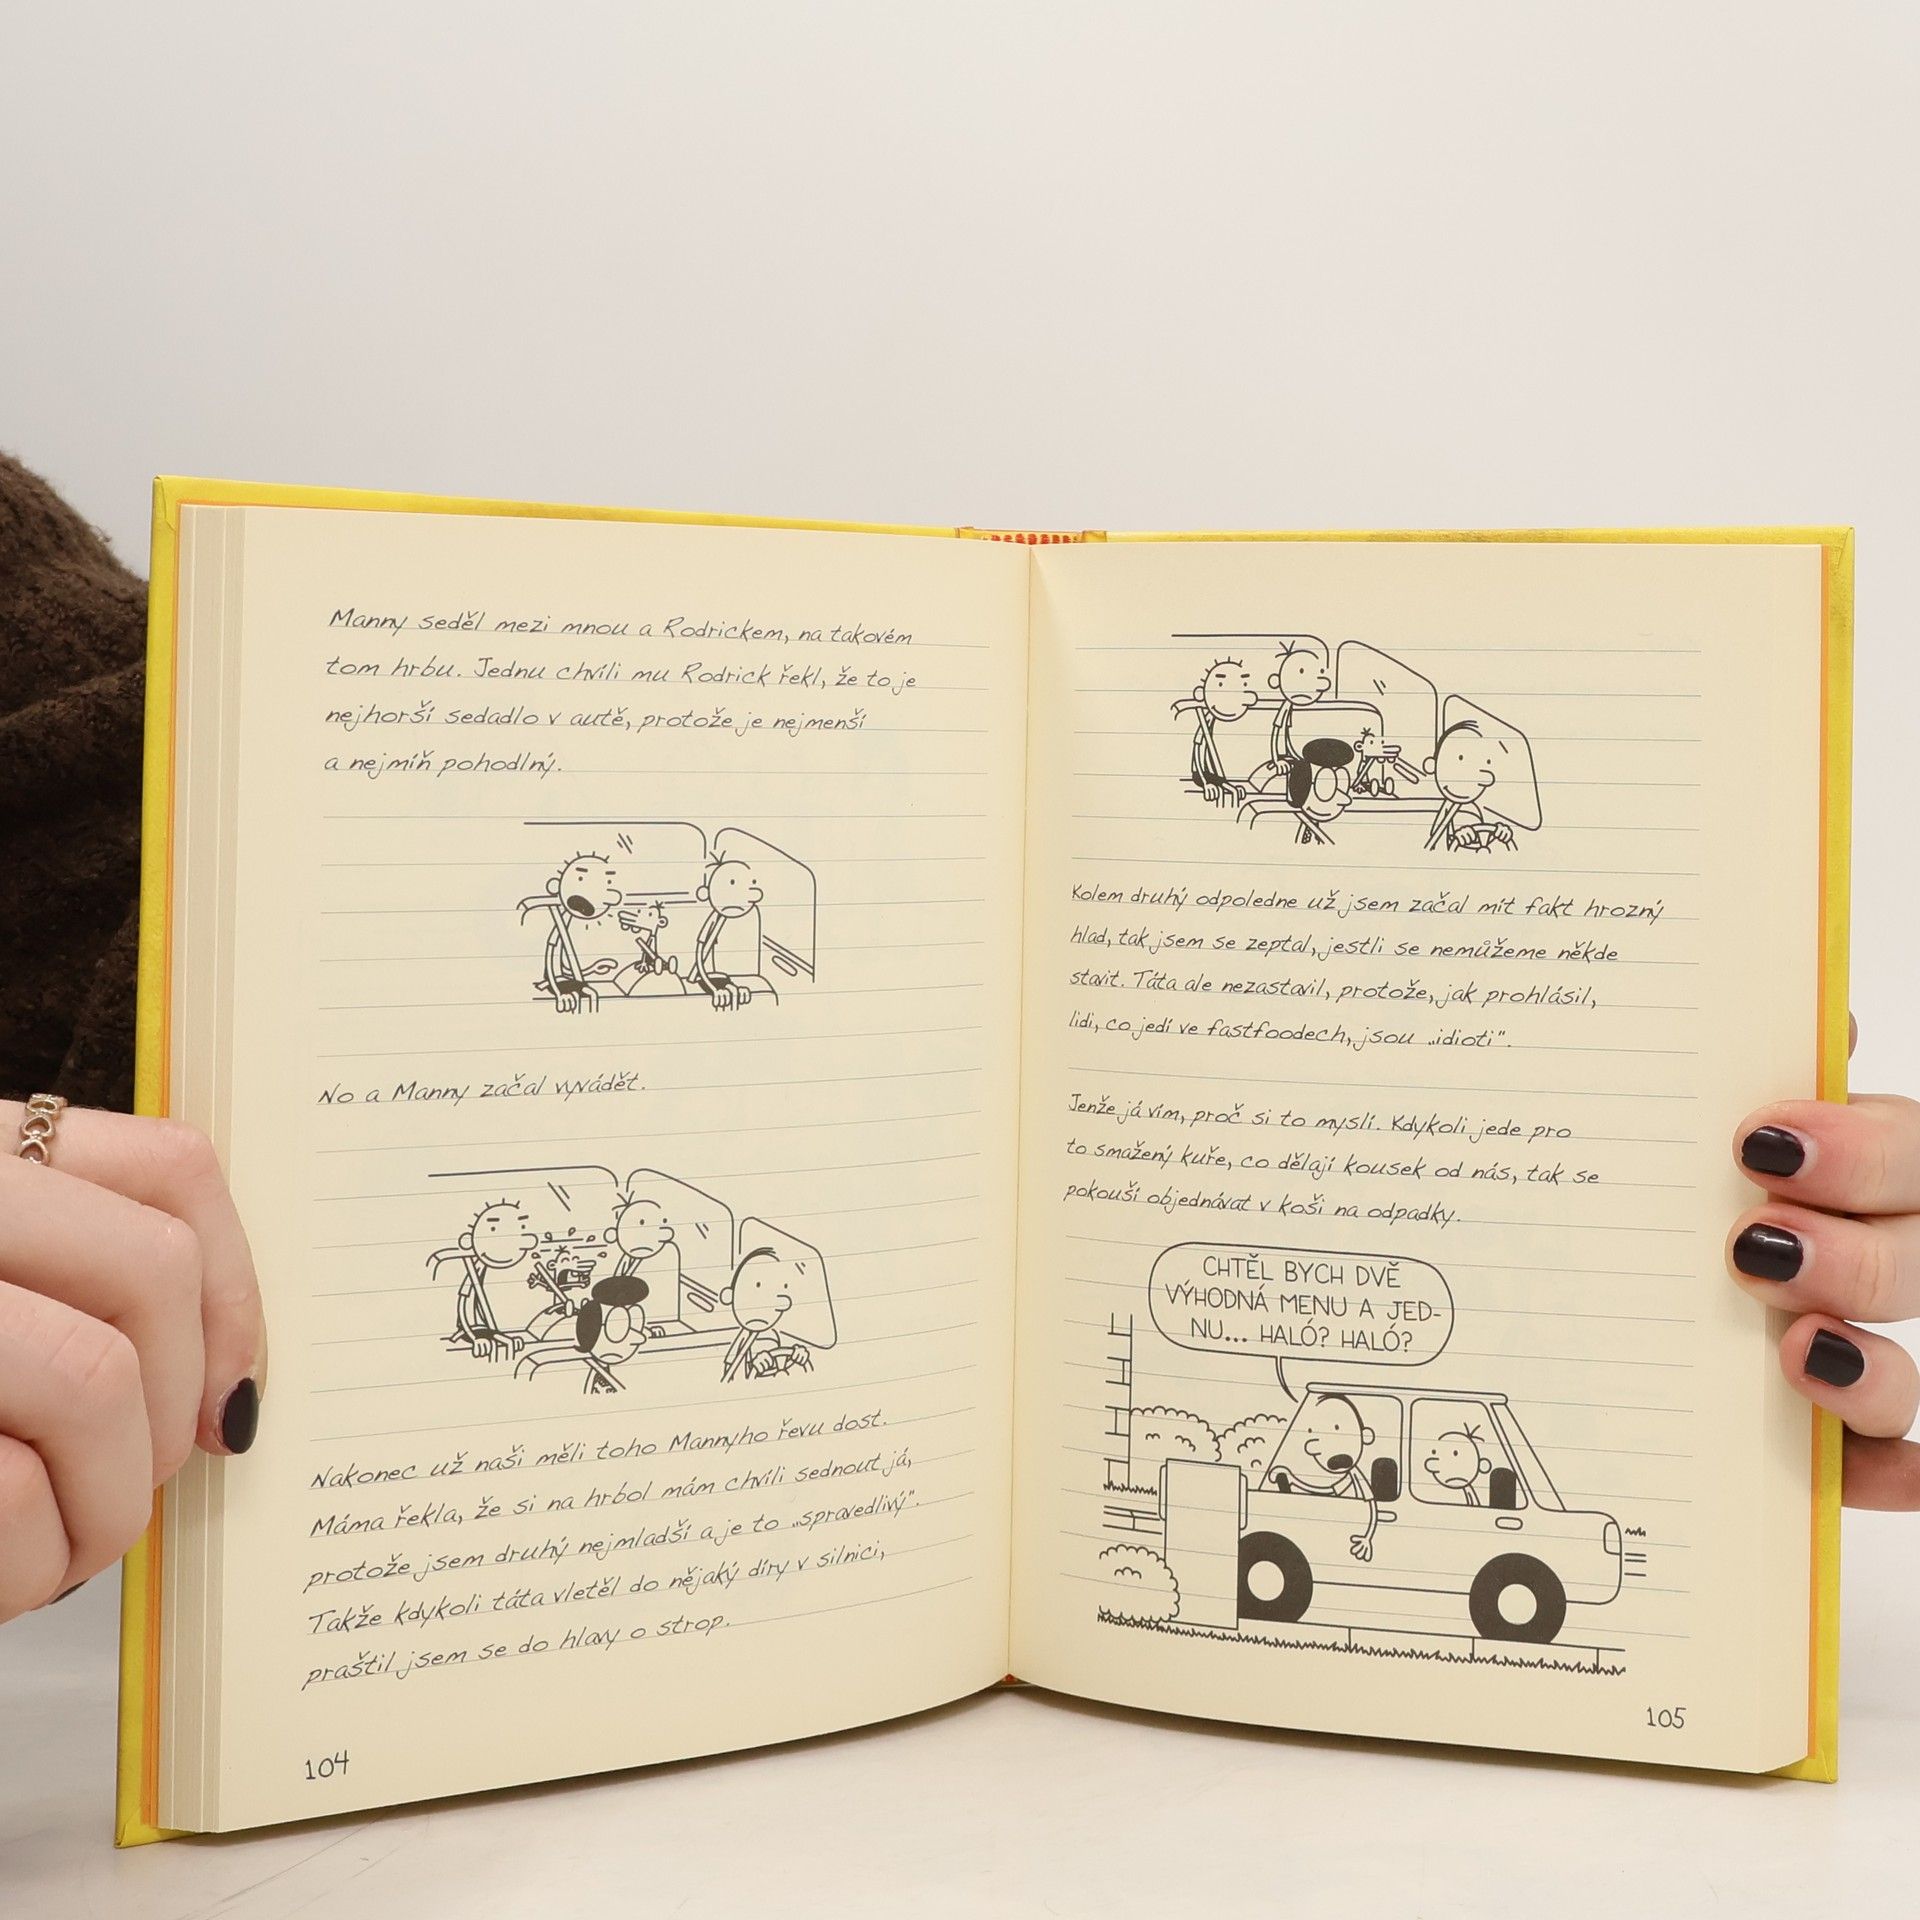 Manny seděl mezi mnou a Rodrickem, na takovém
tom hrbu. Jednu chvíli mu Rodrick řekl, že to je
nejhorší sedadlo v autě, protože je nejmenší
a nejmíň pohodlný.
No a Manny začal vyvádět.
Nakonec už naši měli toho Mannyho řevu dost.
Máma řekla, že si na hrbol mám chvíli sednout já,
protože jsem druhý nejmladší a je to „spravedlivý“.
Takže kdykoli táta vletěl do nějaký díry v silnici,
praštil jsem se do hlavy o strop.
104
Kolem druhý odpoledne už jsem začal mít fakt hrozný
hlad, tak jsem se zeptal, jestli se nemůžeme někde
stavit. Táta ale nezastavil, protože, jak prohlásil,
lidi, co jedí ve fastfoodech, jsou „idioti“.
Jenže já vím, proč si to myslí. Kdykoli jede pro
to smažený kuře, co dělají kousek od nás, tak se
pokouší objednávat v koši na odpadky.
CHTĚL BYCH DVĚ
VÝHODNÁ MENU A JED-
NU... HALÓ? HALÓ?
105